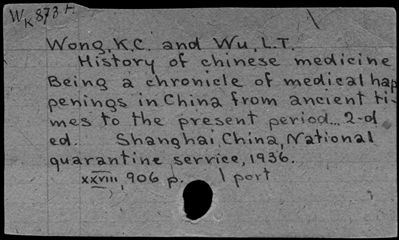 WK873H
Wong, K.C. and Wu, L.T.
History of chinese medicine
Being a chronicle of medical hap
penings in China from ancient ti-
mes to the present period... 2-d
ed. Shanghai, China, National
quarantine service, 1936.
xxviii, 906 p. 1 port